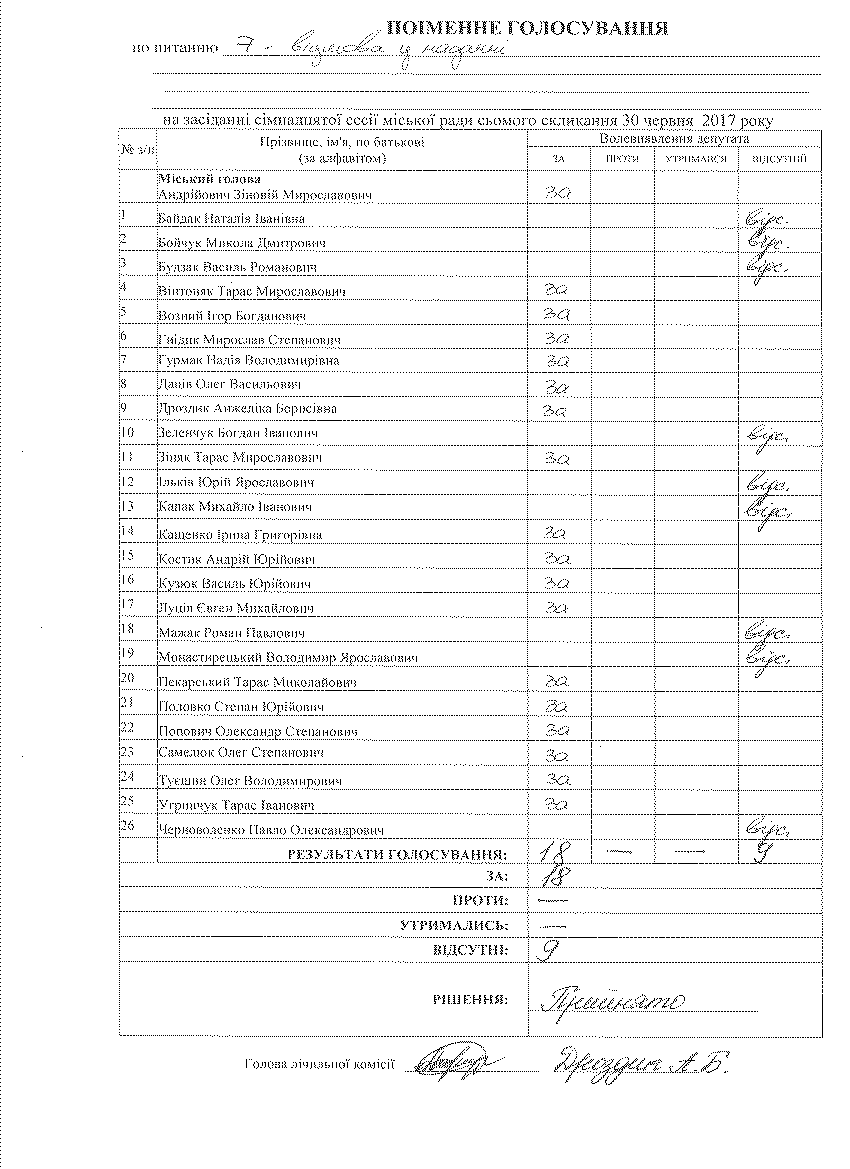 ПОІМЕННЕ ГОЛОСУВАННЯ
по питанню 7 - відмова у наданні
на засіданні сімнадцятої сесії міської ради сьомого скликання 30 червня 2017 року
№ з/п Прізвище, ім'я, по батькові (за алфавітом) Волевиявлення депутата
ЗА ПРОТИ УТРИМАВСЯ ВІДСУТНІЙ
Міський голова
Андрійович Зіновій Мирославович за
1 Байдак Наталія Іванівна відс.
2 Бойчук Микола Дмитрович відс.
3 Будзак Василь Романович відс.
4 Вінтоняк Тарас Мирославович за
5 Возний Ігор Богданович за
6 Гнідик Мирослав Степанович за
7 Гурмак Надія Володимирівна за
8 Даців Олег Васильович за
9 Дроздик Анжеліка Борисівна за
10 Зеленчук Богдан Іванович відс.
11 Зіняк Тарас Мирославович за
12 Ільків Юрій Ярославович відс.
13 Капак Михайло Іванович відс.
14 Кащенко Ірина Григорівна за
15 Костик Андрій Юрійович за
16 Кузюк Василь Юрійович за
17 Луців Євген Михайлович за
18 Мажак Роман Павлович відс.
19 Монастирецький Володимир Ярославович відс.
20 Пекарський Тарас Миколайович за
21 Половко Степан Юрійович за
22 Попович Олександр Степанович за
23 Самелюк Олег Степанович за
24 Туєшин Олег Володимирович за
25 Угринчук Тарас Іванович за
26 Черноволенко Павло Олександрович відс.
РЕЗУЛЬТАТИ ГОЛОСУВАННЯ: 18 — — 9
ЗА: 18
ПРОТИ: —
УТРИМАЛИСЬ: —
ВІДСУТНІ: 9
РІШЕННЯ: Прийнято
Голова лічильної комісії Дроздик А.Б.